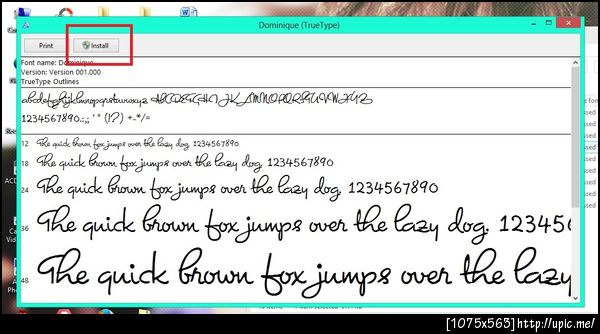 Dominique (TrueType)
Print
Install
Font name: Dominique
Version: Version 001.000
TrueType Outlines
abcdefghijklmnopqrstuvwxyz ABCDEFGHIJKLMNOPQRSTUVWXYZ
1234567890.:,; ' " (!?) +-*/=
12 The quick brown fox jumps over the lazy dog. 1234567890
18 The quick brown fox jumps over the lazy dog. 1234567890
24 The quick brown fox jumps over the lazy dog. 1234567890
36 The quick brown fox jumps over the lazy dog. 123456
48 The quick brown fox jumps over the lazy
[1075x563]http://upic.me/